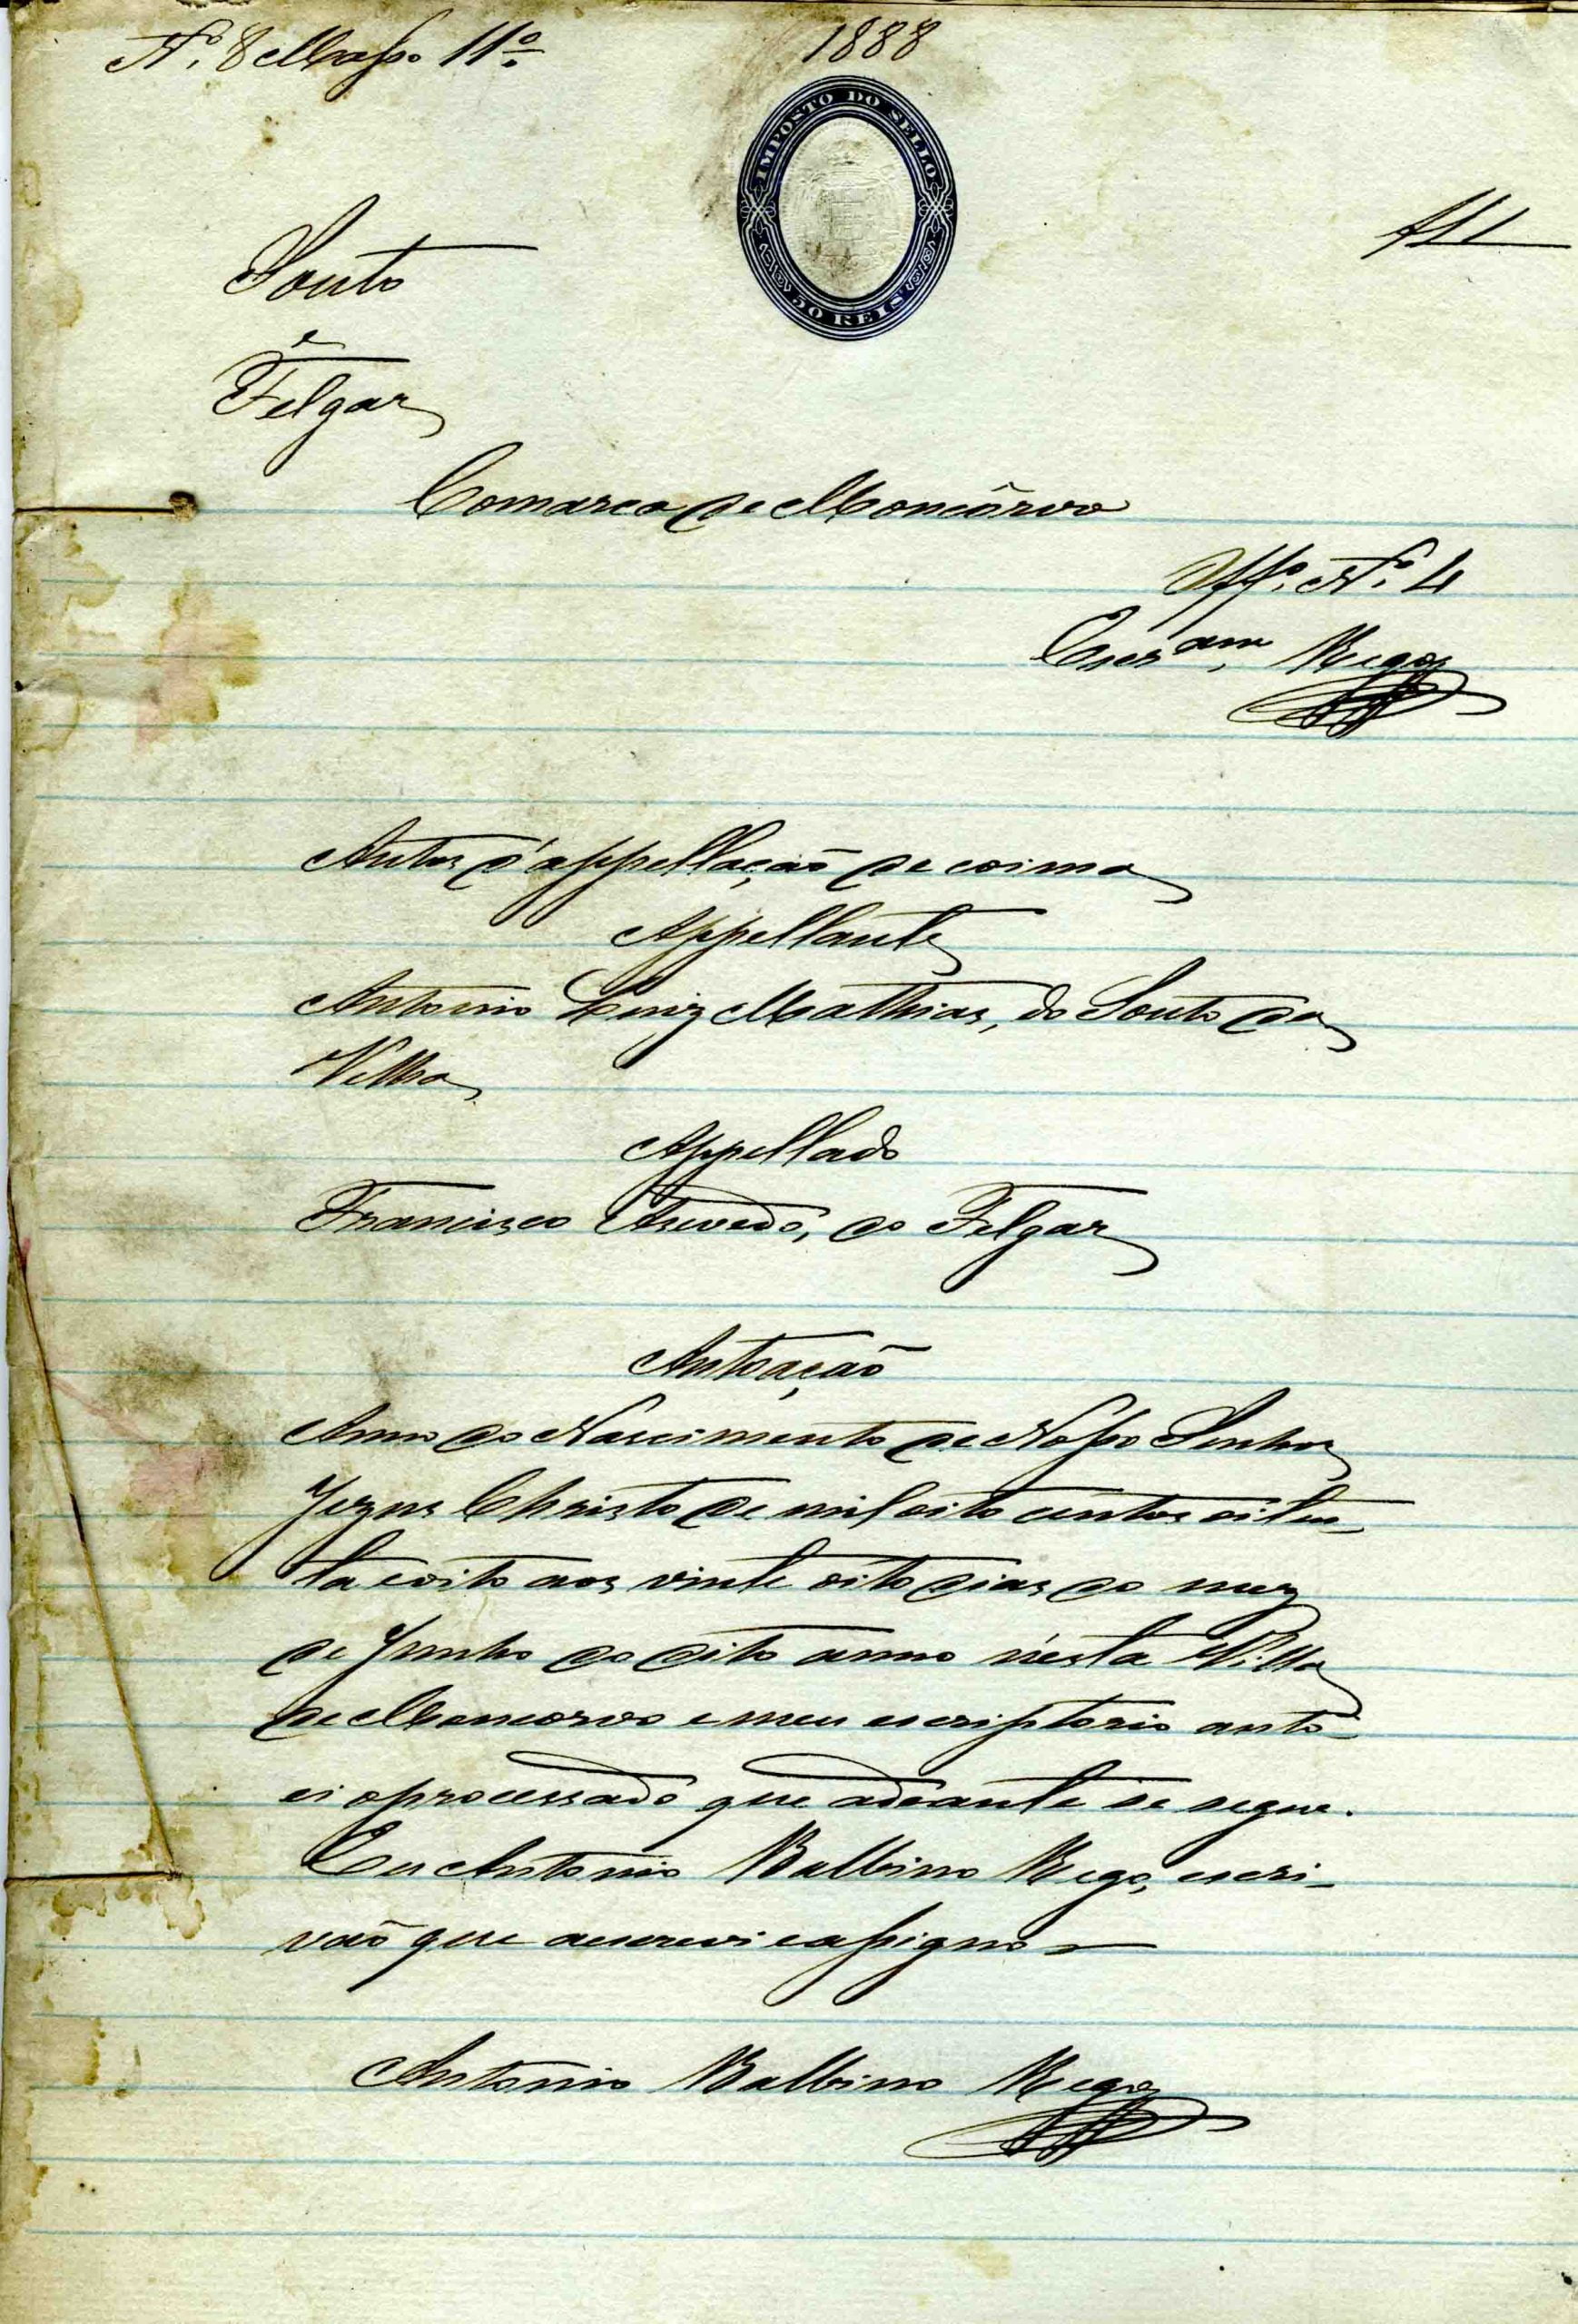 Nº 8 Masso 11º
1888
IMPOSTO DO SELLO
REIS
fl 1
Souto
e
Felgar
Comarca de Moncôrvo
Offº Nº 4
Escram, Rego
Autos d'appellação de coima
Appellante
Antonio Luiz Mathias, do Souto da
Velha
Appellado
Francisco Azevedo, do Felgar
Autoação
Anno do Nascimento de Nosso Senhor
Jezus Christo de mil oito centos oiten-
ta e oito aos vinte oito dias do mez
de Junho do dito anno n'esta Villa
de Moncorvo e meu escriptorio auto-
ei o processado que adeante se segue.
Eu Antonio Balbino Rego, escri-
vão que a escrevi e assigno
Antonio Balbino Rego